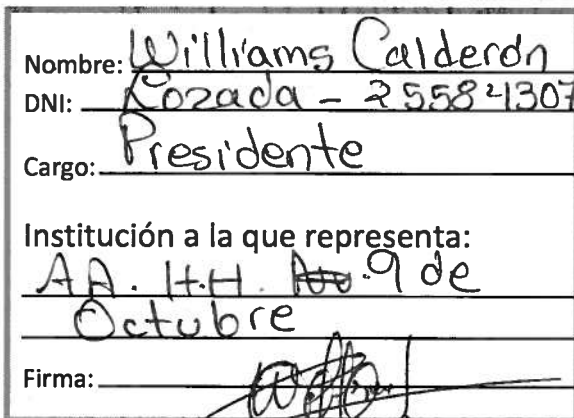 Nombre: Williams Calderón
DNI: Lozada - 25584307
Cargo: Presidente
Institución a la que representa:
AA. H.H. 9 de
Octubre
Firma: